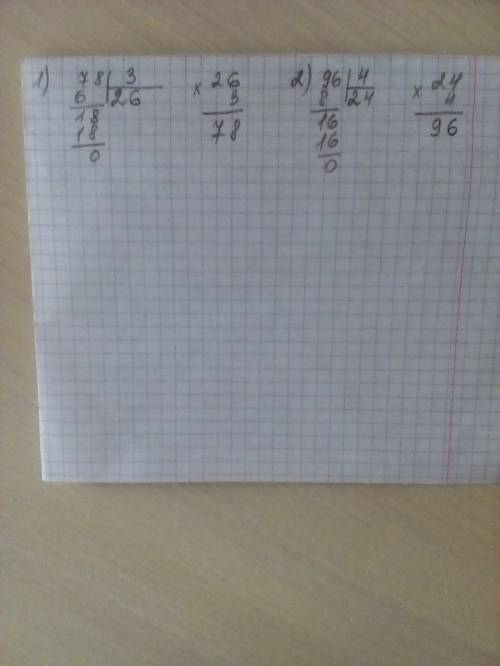 1) 78 3 × 26 2) 96 4 × 24
6 26 3 8 24 4
18 78 16 96
18 16
0 0